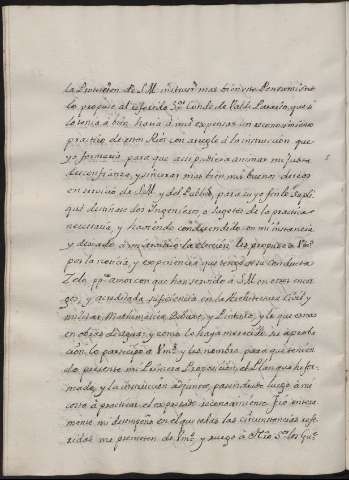 la Proteccion de S.M. instruir mas bien este Pensamiento
lo propuse al referido Sor. Conde de Valde Paraiso, que si
lo tenia à bien haria à mis expensas un reconocimiento
practico de estos Rios con arreglo à la instruccion que
yo formaria para que assi pudiera animar mi justa
desconfianza, y sincerar mas bien mis buenos deseos
en servicio de S.M. y del Publico, para cuyo fin le supli
qué destinase dos Ingenieros o Sugetos de la practica
necesaria, y haviendo condescendido con mi instancia
y dexado à mi arvitrio la eleccion les propuse à Vms.
por la noticia, y experiencia que tengo de su conducta
Zelo, y amor con que han servido à S.M. en otros encar
gos, y acreditada suficiencia en la Architectura Civil y
militar, Mathematica, Dibuxo, y Pintura, y la que en
obras de agua; y como lo haya merecido su aproba
cion, lo participo à Vms. y les nombro para que tenien
do presente mi Primera Proposicion, el Plan que he for
mado, y la instruccion adjunta, pasen desde luego à mi
costa à practicar el expresado reconocimiento: fio entera
mente mi desempeño en el que todas las circunstancias refe
ridas me prometen de Vms. y ruego à Ntro. Sor. les Gue.